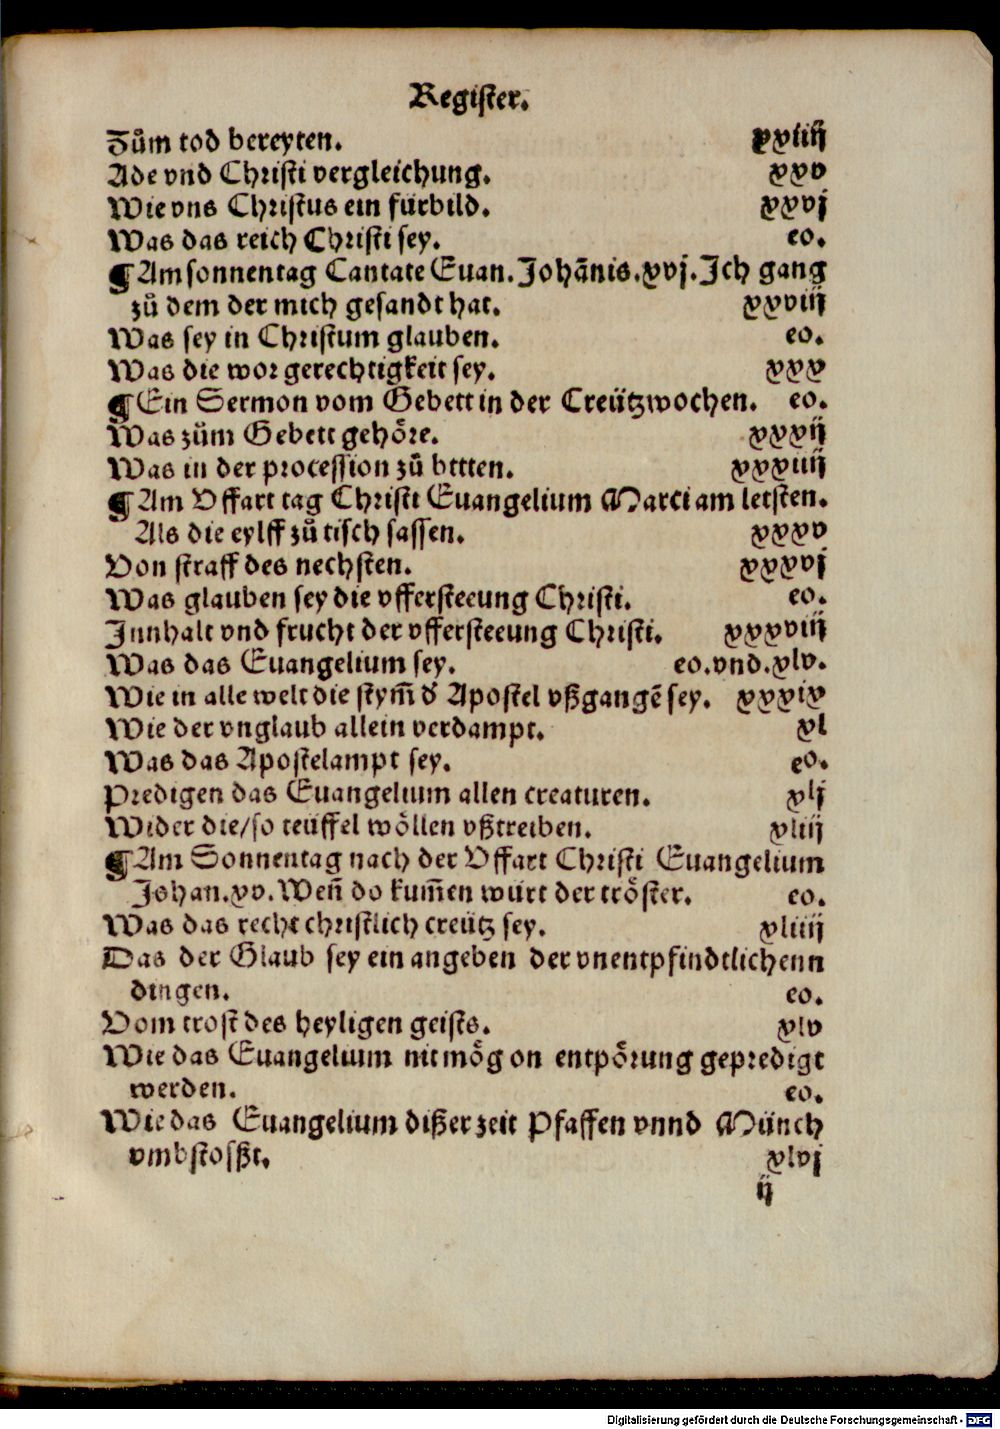 Register.
Zům tod bereyten. xxiiij
Ade vnd Christi vergleichung. xxv
Wie vns Christus ein fürbild. xxvj
Was das reich Christi sey. eo.
¶ Am sonnentag Cantate Euan. Johãnis. xvj. Ich gang
zů dem der mich gesandt hat. xxviij
Was sey in Christum glauben. eo.
Was die wor gerechtigkeit sey. xxx
¶ Ein Sermon vom Gebett in der Creützwochen. eo.
Was zům Gebett gehöre. xxxij
Was in der procession zů bttten. xxxiiij
¶ Am Vffart tag Christi Euangelium Marci am letsten.
Als die eylff zů tisch sassen. xxxv
Von straff des nechsten. xxxvj
Was glauben sey die vffersteeung Christi. eo.
Innhalt vnd frucht der vffersteeung Christi. xxxviij
Was das Euangelium sey. eo. vnd. xlv.
Wie in alle welt die stym̃ d' Apostel vßgangẽ sey. xxxix
Wie der vnglaub allein verdampt. xl
Was das Apostelampt sey. eo.
Predigen das Euangelium allen creaturen. xlj
Wider die/so teüffel wöllen vßtreiben. xliij
¶ Am Sonnentag nach der Vffart Christi Euangelium
Johan. xv. Weñ do kum̃en würt der tröster. eo.
Was das recht christlich creütz sey. xliiij
Das der Glaub sey ein angeben der vnentpfindtlichenn
dingen. eo.
Vom trost des heyligen geists. xlv
Wie das Euangelium nit mög on entpörung gepredigt
werden. eo.
Wie das Euangelium dißer zeit Pfaffen vnnd Münch
vmbstosßt. xlvj
ij
Digitalisierung gefördert durch die Deutsche Forschungsgemeinschaft - DFG